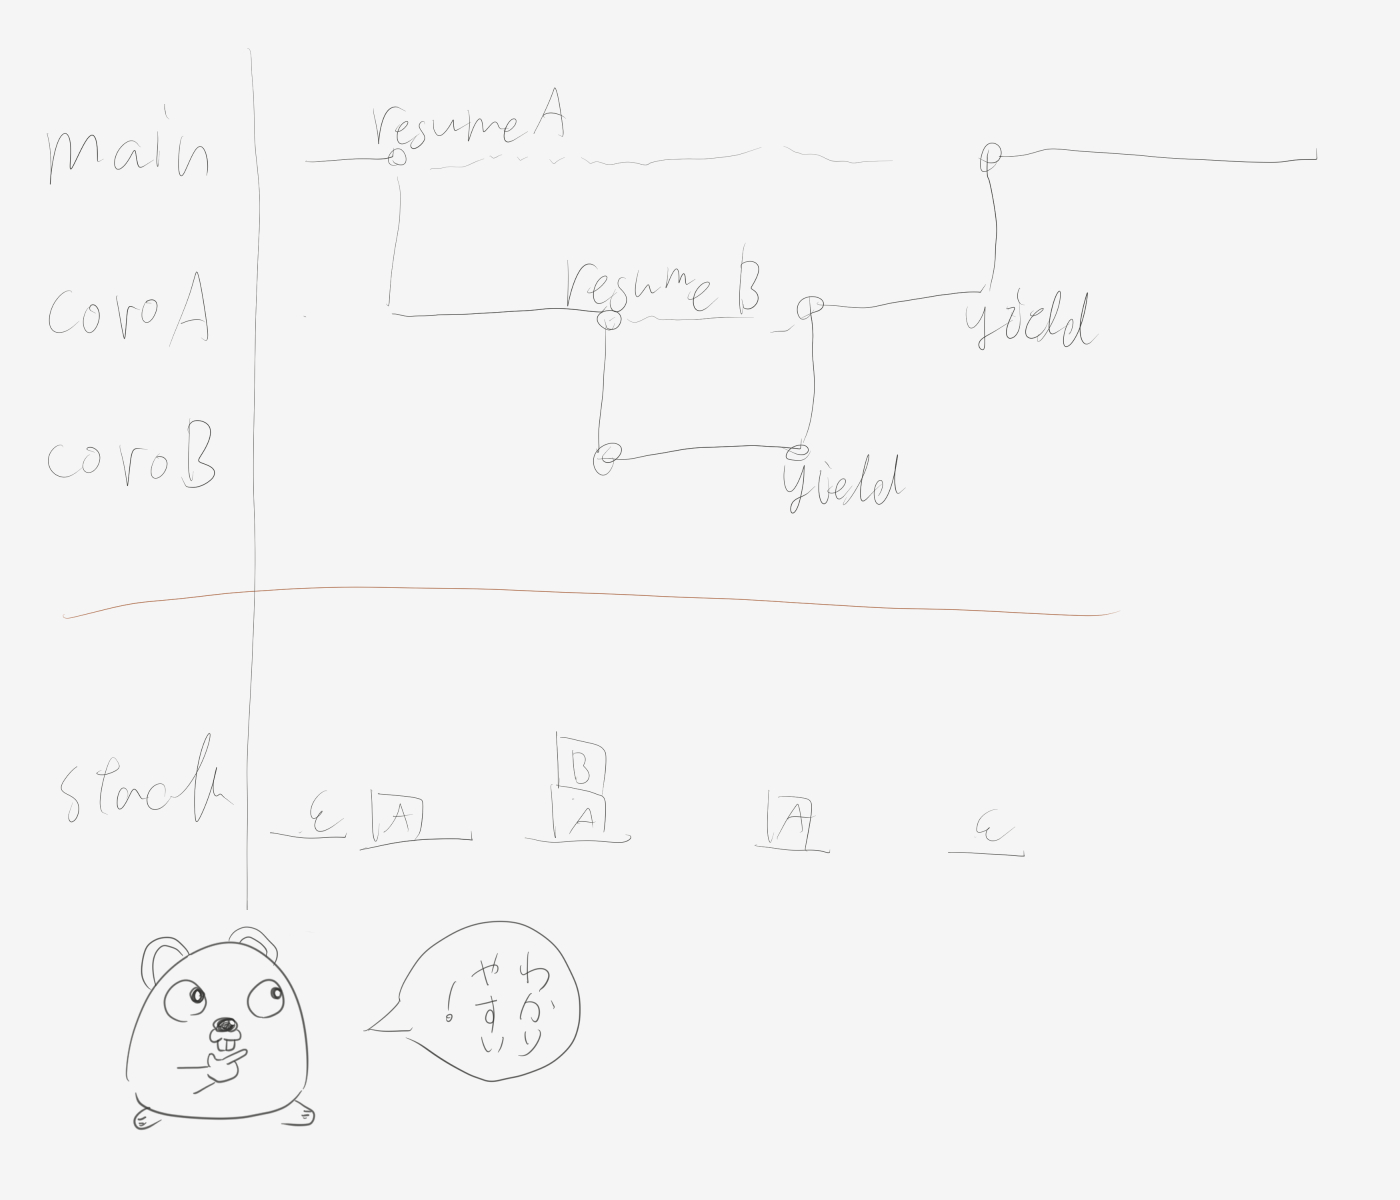 main
resume A
coro A
resume B
yield
coro B
yield
stack
ε
A
B
A
A
ε
わかり
やすい
!